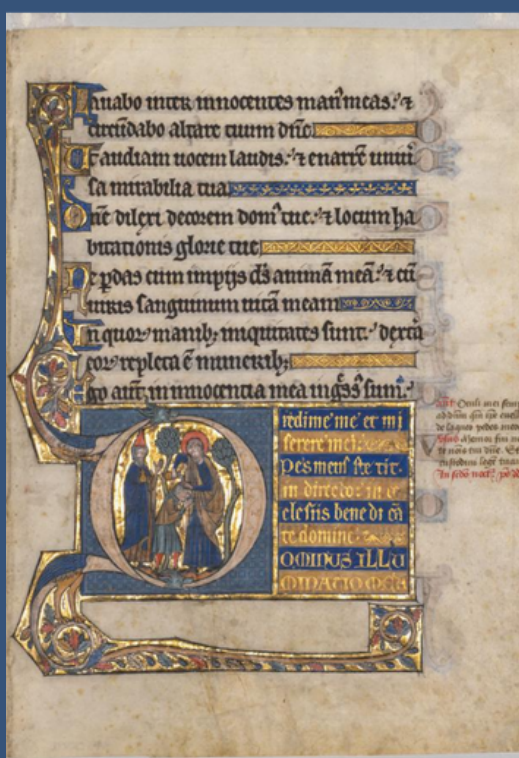 Lauabo inter innocentes man᷒ meas: ⁊
circūdabo altare tuum dn̄e
Ut audiam uocem laudis: ⁊ enarrē uniuͥ
sa mirabilia tua
Dn̄e dilexi decorem dom᷒ tue: ⁊ locum ha
bitationis glorie tue
Ne ꝑdas cum impijs ds̄ animā meā: ⁊ cū
uiris sanguinum uitā meam
In quoꝝ manibꝫ iniquitates sunt: dext̾a
eoꝝ repleta ē muneribꝫ
Ego aut̄ in innocentia mea ingr̄ss᷒ sum:
redime me et mi
serere mei:
Pes meus ste tit
in directo: in ec
clesiis bene di cā
te domine
DOMINUS ILLU
MINATIO MEA
Oculi mei